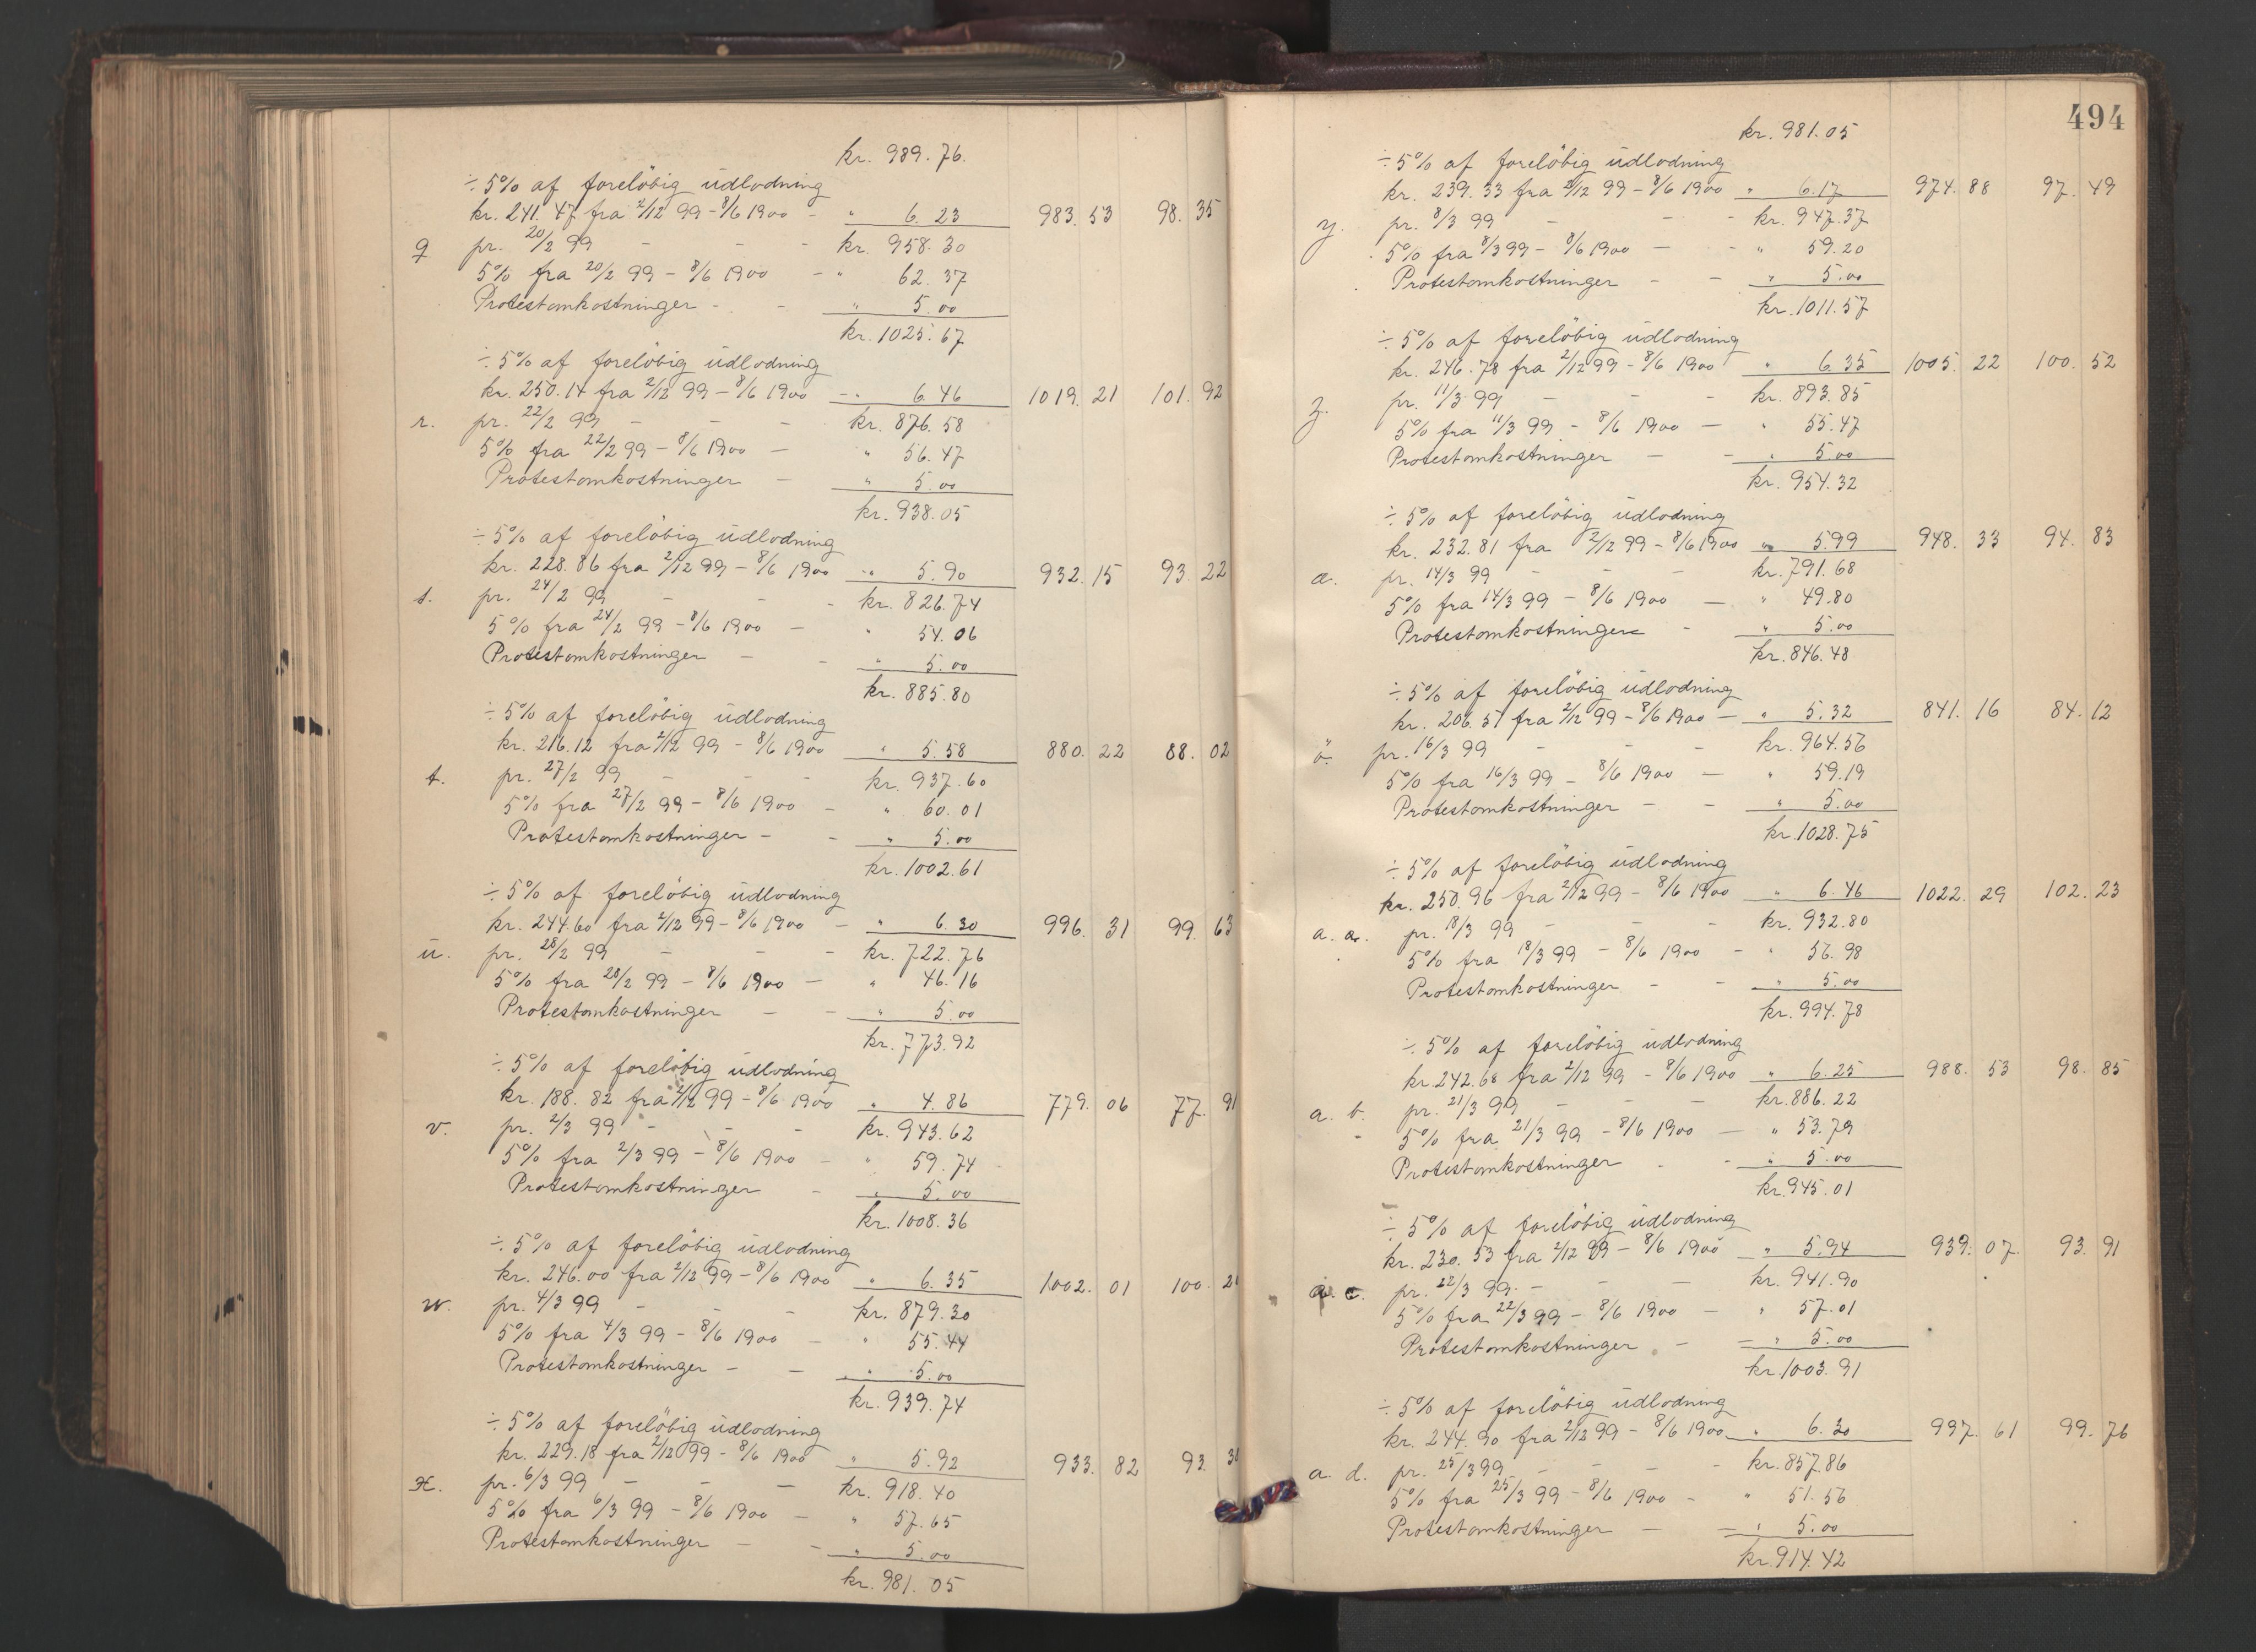 kr. 989.76.
÷ 5% af foreløbig udlodning
kr. 241.47 fra 2/12 99 - 8/6 1900 - " 6.23 983.53 98.35
q pr. 20/2 99 - - - kr. 958.30
5% fra 20/2 99 - 8/6 1900 - " 62.37
Protestomkostninger - - " 5.00
kr. 1025.67
÷ 5% af foreløbig udlodning
kr. 250.14 fra 2/12 99 - 8/6 1900 - " 6.46 1019.21 101.92
r. pr. 22/2 99 - - - kr. 876.58
5% fra 22/2 99 - 8/6 1900 - " 56.47
Protestomkostninger - " 5.00
kr. 938.05
÷ 5% af foreløbig udlodning
kr. 228.86 fra 2/12 99 - 8/6 1900 - " 5.90 932.15 93.22
s. pr. 24/2 99 - - - kr. 826.74
5% fra 24/2 99 - 8/6 1900 - " 54.06
Protestomkostninger - - " 5.00
kr. 885.80
÷ 5% af foreløbig udlodning
kr. 216.12 fra 2/12 99 - 8/6 1900 " 5.58 880.22 88.02
t. pr. 27/2 99 - - - kr. 937.60
5% fra 27/2 99 - 8/6 1900 - " 60.01
Protestomkostninger - - " 5.00
kr. 1002.61
÷ 5% af foreløbig udlodning
kr. 244.60 fra 2/12 99 - 8/6 1900 - " 6.30 996.31 99.63
ü. pr. 28/2 99 - - - kr. 722.76
5% fra 28/2 99 - 8/6 1900 - " 46.16
Protestomkostninger - - " 5.00
kr. 773.92
÷ 5% af foreløbig udlodning
kr. 188.82 fra 2/12 99 - 8/6 1900 " 4.86 779.06 77.91
v. pr. 2/3 99 - - - kr. 943.62
5% fra 2/3 99 - 8/6 1900 - " 59.74
Protestomkostninger - " 5.00
kr. 1008.36
÷ 5% af foreløbig udlodning
kr. 246.00 fra 2/12 99 - 8/6 1900 " 6.35 1002.01 100.20
w. pr. 4/3 99 - - - kr. 879.30
5% fra 4/3 99 - 8/6 1900 - " 55.44
Protestomkostninger - - " 5.00
kr. 939.74
÷ 5% af foreløbig udlodning
kr. 229.18 fra 2/12 99 - 8/6 1900 " 5.92 933.82 93.38
x. pr. 6/3 99 - - - kr. 918.40
5% fra 6/3 99 - 8/6 1900 - " 57.65
Protestomkostninger - - " 5.00
kr. 981.05
494
kr. 981.05
÷ 5% af foreløbig udlodning
kr. 239.33 fra 2/12 99 - 8/6 1900 " 6.17 974.88 97.49
y. pr. 8/3 99 - - - kr. 947.37
5% fra 8/3 99 - 8/6 1900 - - " 59.20
Protestomkostninger - - " 5.00
kr. 1011.57
÷ 5% af foreløbig udlodning
kr. 246.78 fra 2/12 99 - 8/6 1900 " 6.35 1005.22 100.52
z. pr. 11/3 99 - - - kr. 893.85
5% fra 11/3 99 - 8/6 1900 - " 55.47
Protestomkostninger - - " 5.00
kr. 954.32
÷ 5% af foreløbig udlodning
kr. 232.81 fra 2/12 99 - 8/6 1900 " 5.99 948.33 94.83
æ. pr. 14/3 99 - - - kr. 791.68
5% fra 14/3 99 - 8/6 1900 - " 49.80
Protestomkostninger - " 5.00
kr. 846.48
÷ 5% af foreløbig udlodning
kr. 206.57 fra 2/12 99 - 8/6 1900 - " 5.32 841.16 84.12
ö. pr. 16/3 99 - - - kr. 964.56
5% fra 16/3 99 - 8/6 1900 - " 59.19
Protestomkostninger - - " 5.00
kr. 1028.75
÷ 5% af foreløbig udlodning
kr. 250.96 fra 2/12 99 - 8/6 1900 " 6.46 1022.29 102.23
a. a. pr. 18/3 99 - - - kr. 932.80
5% fra 18/3 99 - 8/6 1900 - " 56.98
Protestomkostninger - - " 5.00
kr. 994.78
÷ 5% af foreløbig udlodning
kr. 242.68 fra 2/12 99 - 8/6 1900 " 6.25 988.53 98.85
a. b. pr. 21/3 99 - - - kr. 886.22
5% fra 21/3 99 - 8/6 1900 - " 53.79
Protestomkostninger - - " 5.00
kr. 945.01
÷ 5% af foreløbig udlodning
kr. 230.53 fra 2/12 99 - 8/6 1900 " 5.94 939.07 93.91
a. c. pr. 22/3 99. - - - kr. 941.90
5% fra 22/3 99 - 8/6 1900 - " 57.01
Protestomkostninger - " 5.00
kr. 1003.91
÷ 5% af foreløbig udlodning
kr. 244.90 fra 2/12 99 - 8/6 1900 " 6.30 997.61 99.76
a. d. pr. 25/3 99 - - - kr. 857.86
5% fra 25/3 99 - 8/6 1900 - " 51.56
Protestomkostninger - " 5.00
kr. 914.42